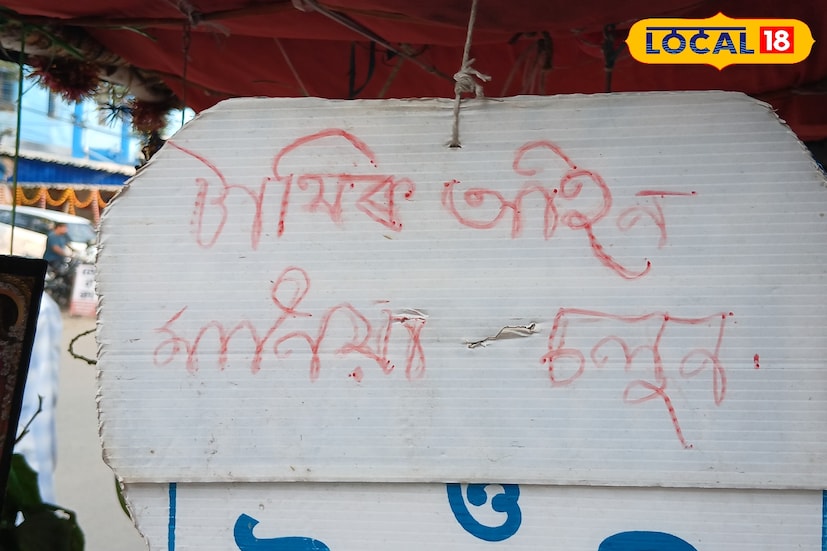 LOCAL 18
টাফিক আইন
মানিয়া চলুন